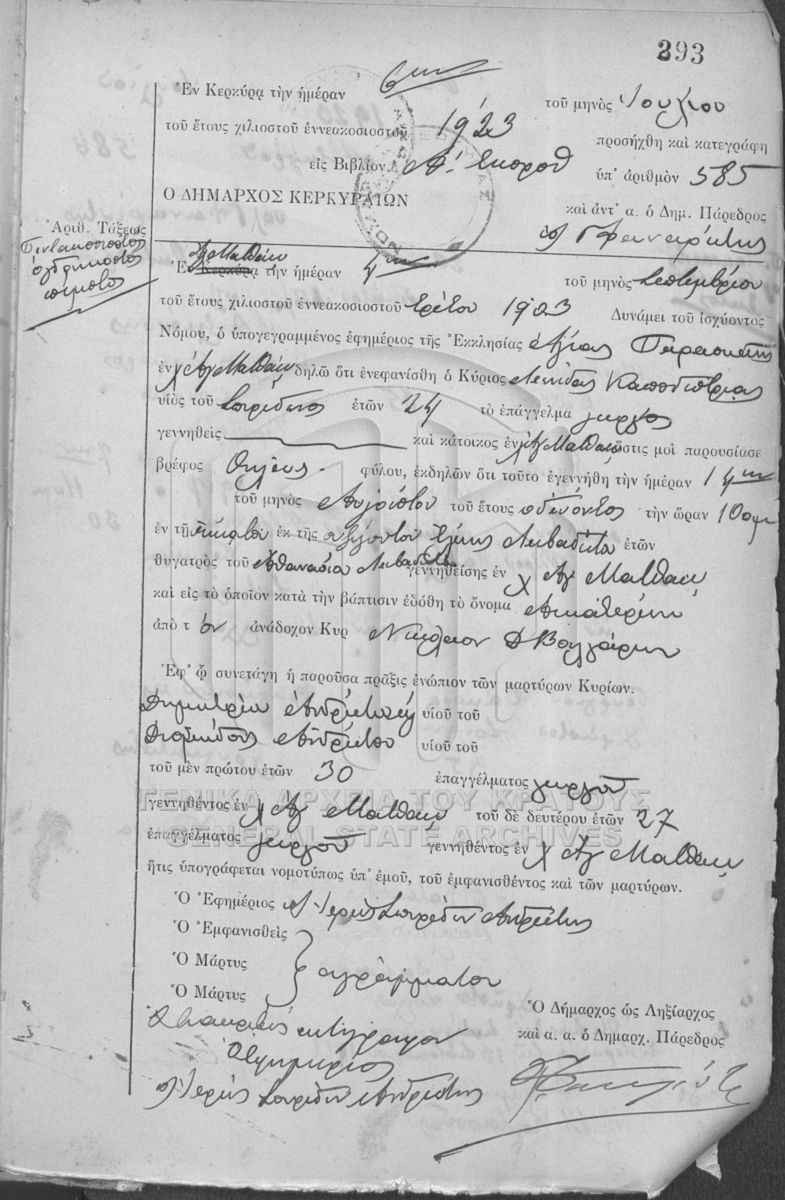 293
Ἐν Κερκύρᾳ τὴν ἡμέραν 6ην τοῦ μηνὸς Ἰουλίου
τοῦ ἔτους χιλιοστοῦ ἐννεακοσιοστοῦ 1923 προσήχθη καὶ κατεγράφη
εἰς Βιβλίον ὑπ' ἀριθμὸν 585
Ο ΔΗΜΑΡΧΟΣ ΚΕΡΚΥΡΑΙΩΝ
καὶ ἀντ' α. ὁ Δημ. Πάρεδρος
Ἀριθ. Τάξεως
Πεντακοσιοστὸς
ὀγδοηκοστὸς
πέμπτος
Ἁγ Ματθαίῳ
Ἐν Κερκύρᾳ τὴν ἡμέραν τοῦ μηνὸς Σεπτεμβρίου
τοῦ ἔτους χιλιοστοῦ ἐννεακοσιοστοῦ τρίτου 1923 Δυνάμει τοῦ ἰσχύοντος
Νόμου, ὁ ὑπογεγραμμένος ἐφημέριος τῆς Ἐκκλησίας Ἁγίας Παρασκευῆς
ἐν χ Ἁγ Ματθαίῳ δηλῶ ὅτι ἐνεφανίσθη ὁ Κύριος Λεωνίδας Καποδίστριας
υἱὸς τοῦ Σπυρίδωνος ἐτῶν 24 τὸ ἐπάγγελμα γεωργὸς
γεννηθεὶς καὶ κάτοικος ἐν χ Ἁγ Ματθαίῳ ὅστις μοὶ παρουσίασε
βρέφος θήλεος φύλου, ἐκδηλῶν ὅτι τοῦτο ἐγεννήθη τὴν ἡμέραν 14ην
τοῦ μηνὸς Αὐγούστου τοῦ ἔτους ὁδεύοντος τὴν ὥραν 10
ἐν τῇ ἐκ τῆς συζύγου του Ἑλένης Λιβαδιώτου ἐτῶν
θυγατρὸς τοῦ Ἀθανασίου Λιβαδιώτου γεννηθείσης ἐν χ Ἁγ Ματθαίῳ
καὶ εἰς τὸ ὁποῖον κατὰ τὴν βάπτισιν ἐδόθη τὸ ὄνομα Αἰκατερίνη
ἀπὸ τ ὸν ἀνάδοχον Κυρ Νικόλαον Δ Βούλγαρην
Ἐφ' ᾧ συνετάγη ἡ παροῦσα πρᾶξις ἐνώπιον τῶν μαρτύρων Κυρίων.
Δημητρίου υἱοῦ τοῦ
Διομήδους Ἀνδριώτου υἱοῦ τοῦ
τοῦ μὲν πρώτου ἐτῶν 30 ἐπαγγέλματος γεωργοῦ
γεννηθέντος ἐν χ Ἁγ Ματθαίῳ τοῦ δὲ δευτέρου ἐτῶν 27
ἐπαγγέλματος γεωργοῦ γεννηθέντος ἐν χ Ἁγ Ματθαίῳ
ἥτις ὑπογράφεται νομοτύπως ὑπ' ἐμοῦ, τοῦ ἐμφανισθέντος καὶ τῶν μαρτύρων.
Ὁ Ἐφημέριος ὁ Ἱερεὺς Σπυρίδων Ἀνδριώτης
Ὁ Ἐμφανισθεὶς
Ὁ Μάρτυς ἀγράμματοι
Ὁ Μάρτυς
Ὁ Δήμαρχος ὡς Ληξίαρχος
καὶ α. α. ὁ Δημαρχ. Πάρεδρος
ἀκριβὲς ἀντίγραφον
Ὁ ἐφημέριος
ὁ Ἱερεὺς Σπυρίδων Ἀνδριώτης
ΓΕΝΙΚΑ ΑΡΧΕΙΑ ΤΟΥ ΚΡΑΤΟΥΣ
GENERAL STATE ARCHIVES